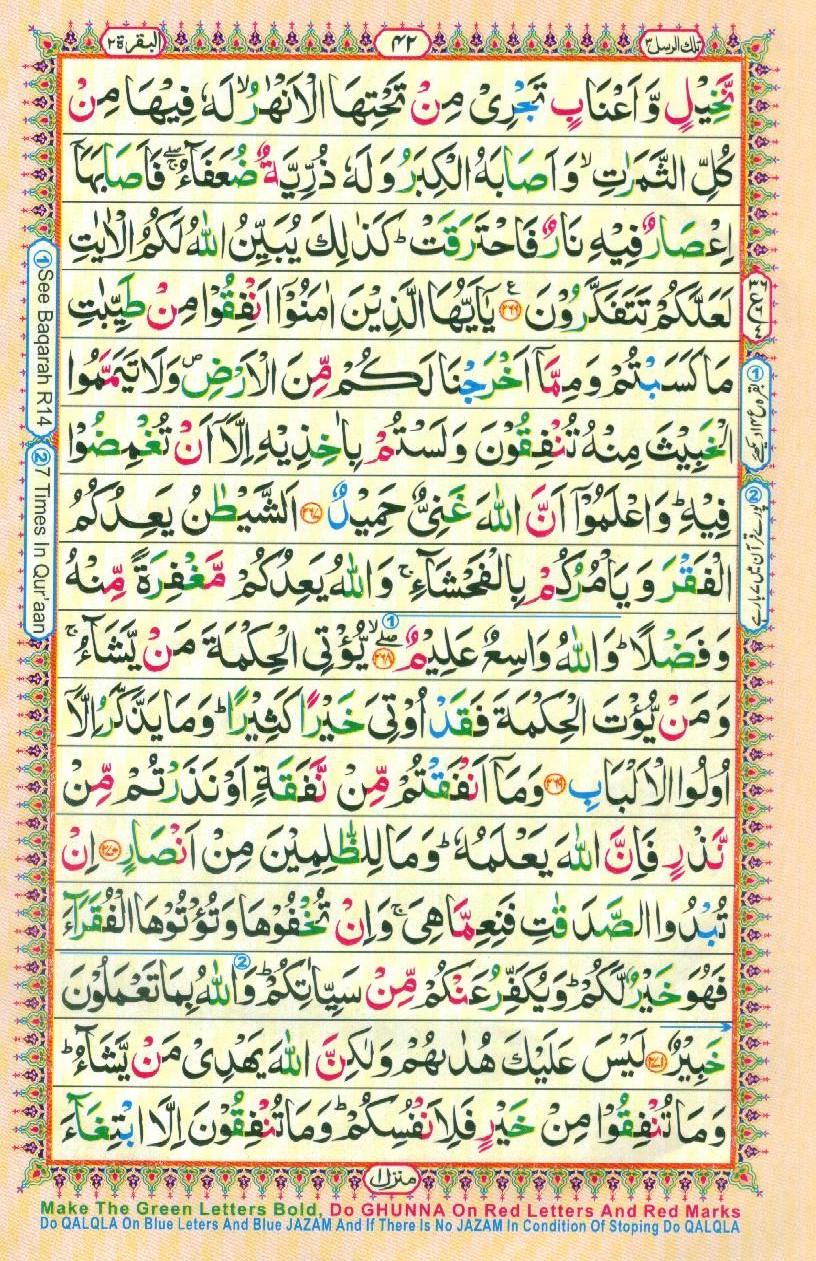 البقرة ۲
۴۲
تلك الرسل ۳
نَّخِيْلٍ وَّاَعْنَابٍ تَجْرِیْ مِنْ تَحْتِهَا الْاَنْهٰرُ ۙ لَهٗ فِيْهَا مِنْ
كُلِّ الثَّمَرٰتِ ۙ وَاَصَابَهُ الْكِبَرُ وَلَهٗ ذُرِّيَّةٌ ضُعَفَآءُ ۖۚ فَاَصَابَهَاۤ
اِعْصَارٌ فِيْهِ نَارٌ فَاحْتَرَقَتْ ؕ كَذٰلِكَ يُبَيِّنُ اللّٰهُ لَكُمُ الْاٰيٰتِ
لَعَلَّكُمْ تَتَفَكَّرُوْنَ ﴿۲۶۶﴾ ع يٰۤاَيُّهَا الَّذِيْنَ اٰمَنُوْۤا اَنْفِقُوْا مِنْ طَيِّبٰتِ
مَا كَسَبْتُمْ وَمِمَّاۤ اَخْرَجْنَا لَكُمْ مِّنَ الْاَرْضِ ۪ وَلَا تَيَمَّمُوا
الْخَبِيْثَ مِنْهُ تُنْفِقُوْنَ وَلَسْتُمْ بِاٰخِذِيْهِ اِلَّاۤ اَنْ تُغْمِضُوْا
فِيْهِ ؕ وَاعْلَمُوْۤا اَنَّ اللّٰهَ غَنِیٌّ حَمِيْدٌ ﴿۲۶۷﴾ اَلشَّيْطٰنُ يَعِدُكُمُ
الْفَقْرَ وَيَاْمُرُكُمْ بِالْفَحْشَآءِ ۚ وَاللّٰهُ يَعِدُكُمْ مَّغْفِرَةً مِّنْهُ
وَفَضْلًا ؕ وَاللّٰهُ وَاسِعٌ عَلِيْمٌ ﴿۲۶۸﴾ ۖۙ ① يُّؤْتِی الْحِكْمَةَ مَنْ يَّشَآءُ ۚ
وَمَنْ يُّؤْتَ الْحِكْمَةَ فَقَدْ اُوْتِیَ خَيْرًا كَثِيْرًا ؕ وَمَا يَذَّكَّرُ اِلَّاۤ
اُولُوا الْاَلْبَابِ ﴿۲۶۹﴾ وَمَاۤ اَنْفَقْتُمْ مِّنْ نَّفَقَةٍ اَوْ نَذَرْتُمْ مِّنْ
نَّذْرٍ فَاِنَّ اللّٰهَ يَعْلَمُهٗ ؕ وَمَا لِلظّٰلِمِيْنَ مِنْ اَنْصَارٍ ﴿۲۷۰﴾ اِنْ
تُبْدُوا الصَّدَقٰتِ فَنِعِمَّا هِیَ ۚ وَاِنْ تُخْفُوْهَا وَتُؤْتُوْهَا الْفُقَرَآءَ
فَهُوَ خَيْرٌ لَّكُمْ ؕ وَيُكَفِّرُ عَنْكُمْ مِّنْ سَيِّاٰتِكُمْ ؕ ② وَاللّٰهُ بِمَا تَعْمَلُوْنَ
خَبِيْرٌ ﴿۲۷۱﴾ لَيْسَ عَلَيْكَ هُدٰىهُمْ وَلٰكِنَّ اللّٰهَ يَهْدِیْ مَنْ يَّشَآءُ ؕ
وَمَا تُنْفِقُوْا مِنْ خَيْرٍ فَلِاَنْفُسِكُمْ ؕ وَمَا تُنْفِقُوْنَ اِلَّا ابْتِغَآءَ
① See Baqarah R14
② 7 Times In Qur'aan
منزل ۱
Make The Green Letters Bold, Do GHUNNA On Red Letters And Red Marks
Do QALQLA On Blue Leters And Blue JAZAM And If There Is No JAZAM In Condition Of Stoping Do QALQLA